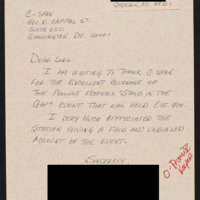 C-SPAN
400 N. CAPITOL ST.
SUITE 650
WASHINGTON, DC 20001
DEAR SIRS
I AM WRITING TO THANK C-SPAN
FOR THE EXCELLENT COVERAGE OF
THE PROMISE KEEPERS STAND IN THE
GAP EVENT THAT WAS HELD OCT. 4TH.
I VERY MUCH APPRECIATED THE
STATION GIVING A FAIR AND UNBIASED
ACCOUNT OF THE EVENT.
SINCERELY,
O-Promise
Keepers